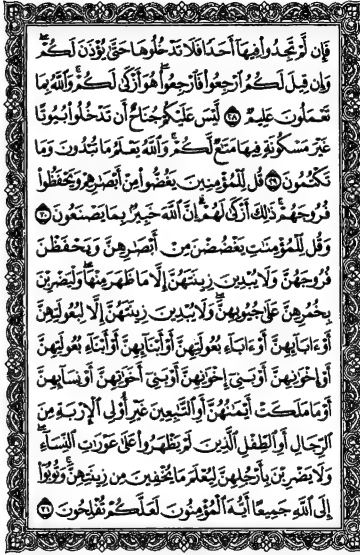 فَإِن لَّمْ تَجِدُوا۟ فِيهَآ أَحَدًا فَلَا تَدْخُلُوهَا حَتَّىٰ يُؤْذَنَ لَكُمْ ۖ
وَإِن قِيلَ لَكُمُ ٱرْجِعُوا۟ فَٱرْجِعُوا۟ ۖ هُوَ أَزْكَىٰ لَكُمْ ۚ وَٱللَّهُ بِمَا
تَعْمَلُونَ عَلِيمٌ ٢٨ لَّيْسَ عَلَيْكُمْ جُنَاحٌ أَن تَدْخُلُوا۟ بُيُوتًا
غَيْرَ مَسْكُونَةٍ فِيهَا مَتَٰعٌ لَّكُمْ ۚ وَٱللَّهُ يَعْلَمُ مَا تُبْدُونَ وَمَا
تَكْتُمُونَ ٢٩ قُل لِّلْمُؤْمِنِينَ يَغُضُّوا۟ مِنْ أَبْصَٰرِهِمْ وَيَحْفَظُوا۟
فُرُوجَهُمْ ۚ ذَٰلِكَ أَزْكَىٰ لَهُمْ ۗ إِنَّ ٱللَّهَ خَبِيرٌۢ بِمَا يَصْنَعُونَ ٣٠
وَقُل لِّلْمُؤْمِنَٰتِ يَغْضُضْنَ مِنْ أَبْصَٰرِهِنَّ وَيَحْفَظْنَ
فُرُوجَهُنَّ وَلَا يُبْدِينَ زِينَتَهُنَّ إِلَّا مَا ظَهَرَ مِنْهَا ۖ وَلْيَضْرِبْنَ
بِخُمُرِهِنَّ عَلَىٰ جُيُوبِهِنَّ ۖ وَلَا يُبْدِينَ زِينَتَهُنَّ إِلَّا لِبُعُولَتِهِنَّ
أَوْ ءَابَآئِهِنَّ أَوْ ءَابَآءِ بُعُولَتِهِنَّ أَوْ أَبْنَآئِهِنَّ أَوْ أَبْنَآءِ بُعُولَتِهِنَّ
أَوْ إِخْوَٰنِهِنَّ أَوْ بَنِىٓ إِخْوَٰنِهِنَّ أَوْ بَنِىٓ أَخَوَٰتِهِنَّ أَوْ نِسَآئِهِنَّ
أَوْ مَا مَلَكَتْ أَيْمَٰنُهُنَّ أَوِ ٱلتَّٰبِعِينَ غَيْرِ أُو۟لِى ٱلْإِرْبَةِ مِنَ
ٱلرِّجَالِ أَوِ ٱلطِّفْلِ ٱلَّذِينَ لَمْ يَظْهَرُوا۟ عَلَىٰ عَوْرَٰتِ ٱلنِّسَآءِ ۖ
وَلَا يَضْرِبْنَ بِأَرْجُلِهِنَّ لِيُعْلَمَ مَا يُخْفِينَ مِن زِينَتِهِنَّ ۚ وَتُوبُوٓا۟
إِلَى ٱللَّهِ جَمِيعًا أَيُّهَ ٱلْمُؤْمِنُونَ لَعَلَّكُمْ تُفْلِحُونَ ٣١